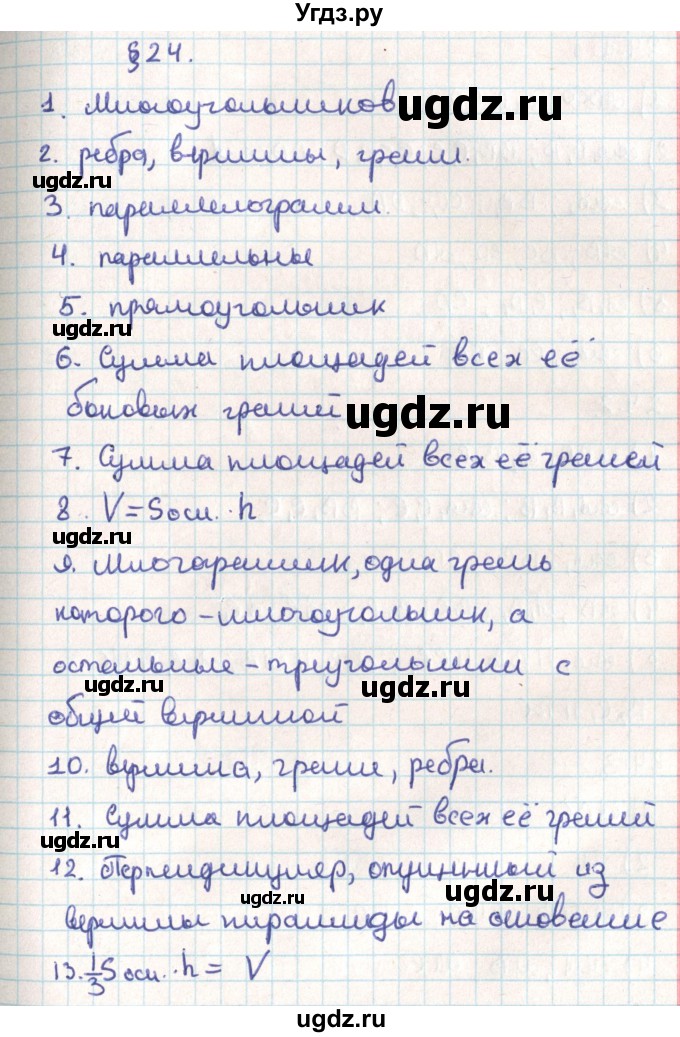 Угдз.ру
§24.
1. Многоугольников ugdz.ru
2. ребра, вершины, грани.
ugdz.ru
3. параллелограмм.
4. параллельны
5. прямоугольник
ugdz.ru
6. Сумма площадей всех её
боковых граней ugdz.ru
7. Сумма площадей всех её граней
8. V=Sосн.·h
ugdz.ru
9. Многогранник, одна грань
которого - многоугольник, а
остальные - треугольники с
ugdz.ru ugdz.ru
общей вершиной
10. вершина, грани, ребра.
11. Сумма площадей всех её граней
ugdz.ru
12. Перпендикуляр, опущенный из
ugdz.ru ugdz.ru
вершины пирамиды на основание
13. 1/3 Sосн.·h = V
ugdz.ru